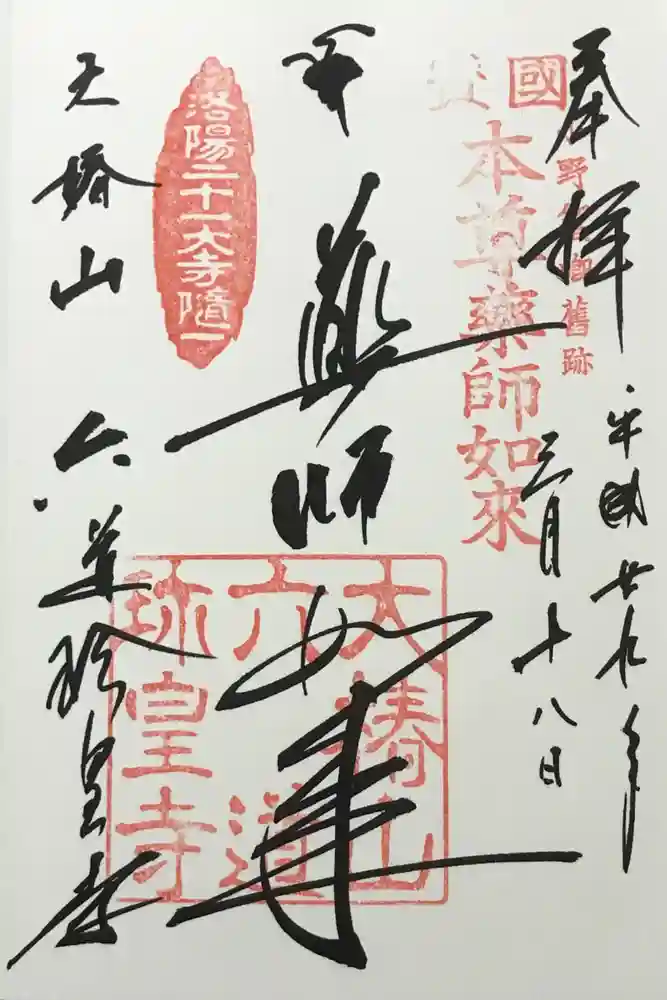 奉拝
平成廿九年
三月十八日
野篁卿舊跡
國
本尊藥師如來
藥師如来
大椿山
六道
珎皇寺
洛陽二十一大寺隨一
大椿山
六道珎皇寺